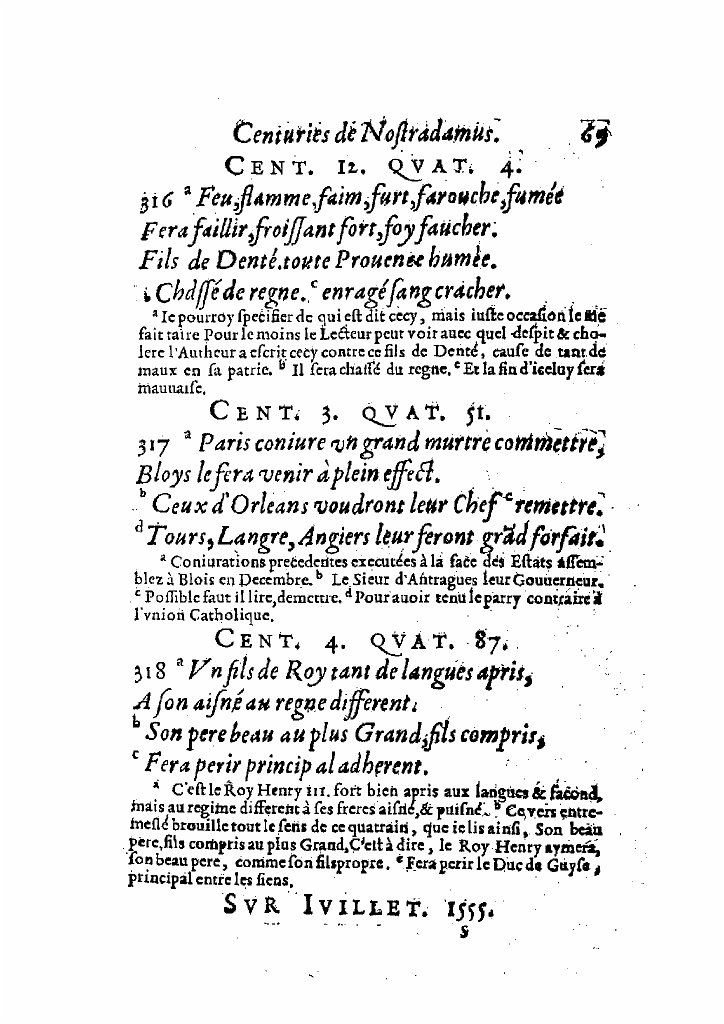 Centuries de Nostradamus. 69
CENT. 12. QVAT. 4.
316 ᵃ Feu, flamme, faim, furt, farouche, fumée
Fera faillir, froissant fort, foy faucher.
Fils de Denté. toute Prouence humée.
Chassé de regne. ᶜ enragé sang cracher.
ᵃ Ie pourroy specifier de qui est dit cecy, mais iuste occasion le me
fait taire Pour le moins le Lecteur peut voir auec quel despit & cho-
lere l'Autheur a escrit cecy contre ce fils de Denté, cause de tant de
maux en sa patrie. ᵇ Il sera chassé du regne. ᶜ Et la fin d'iceluy sera
mauuaise.
CENT. 3. QVAT. 51.
317 ᵃ Paris coniure vn grand murtre commettre,
Bloys le fera venir à plein effect.
ᵇ Ceux d'Orleans voudront leur Chef ᶜ remettre.
ᵈ Tours, Langre, Angiers leur feront grãd forfait.
ᵃ Coniurations precedentes executées à la face des Estats assem-
blez à Blois en Decembre. ᵇ Le Sieur d'Antragues leur Gouuerneur.
ᶜ Possible faut il lire, demettre. ᵈ Pour auoir tenu le party contraire à
l'vnion Catholique.
CENT. 4. QVAT. 87.
318 ᵃ Vn fils de Roy tant de langues apris,
A son aisné au regne different.
ᵇ Son pere beau au plus Grand, fils compris,
ᶜ Fera perir principal adherent.
ᵃ C'est le Roy Henry III. fort bien apris aux langues & facond,
mais au regime different à ses freres aisné, & puisné. ᵇ Ce vers entre-
meslé brouille tout le sens de ce quatrain, que ie lis ainsi, Son beau
pere, fils compris au plus Grand. C'est à dire, le Roy Henry aymera,
son beau pere, comme son fils propre. ᶜ Fera perir le Duc de Guyse,
principal entre les siens.
SVR IVILLET. 1555.
S